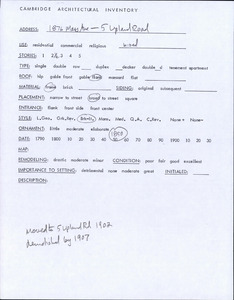 CAMBRIDGE ARCHITECTURAL INVENTORY
ADDRESS: 1876 Mass Ave — 5 Upland Road
USE: residential commercial religious
STORIES: 1 2 3 4 5
TYPE: single double row duplex decker double d tenement apartment
ROOF: hip gable front gable flank mansard flat
MATERIAL: frame brick SIDING: original subsequent
PLACEMENT: narrow to street broad to street square
ENTRANCE: flank front side front center
STYLE: Mans. Med. Q.A. C.Rev. None+ None-
ORNAMENT: little moderate elaborate
DATE: 1790 1800 10 20 30 40 50 60 70 80 90 1900 10 20 30
MAP:
REMODELING: drastic moderate minor CONDITION: poor fair good excellent
IMPORTANCE TO SETTING: detrimental none moderate great INITIALS:
DESCRIPTION:
moved to 5 Upland Rd 1902
demolished by 1907